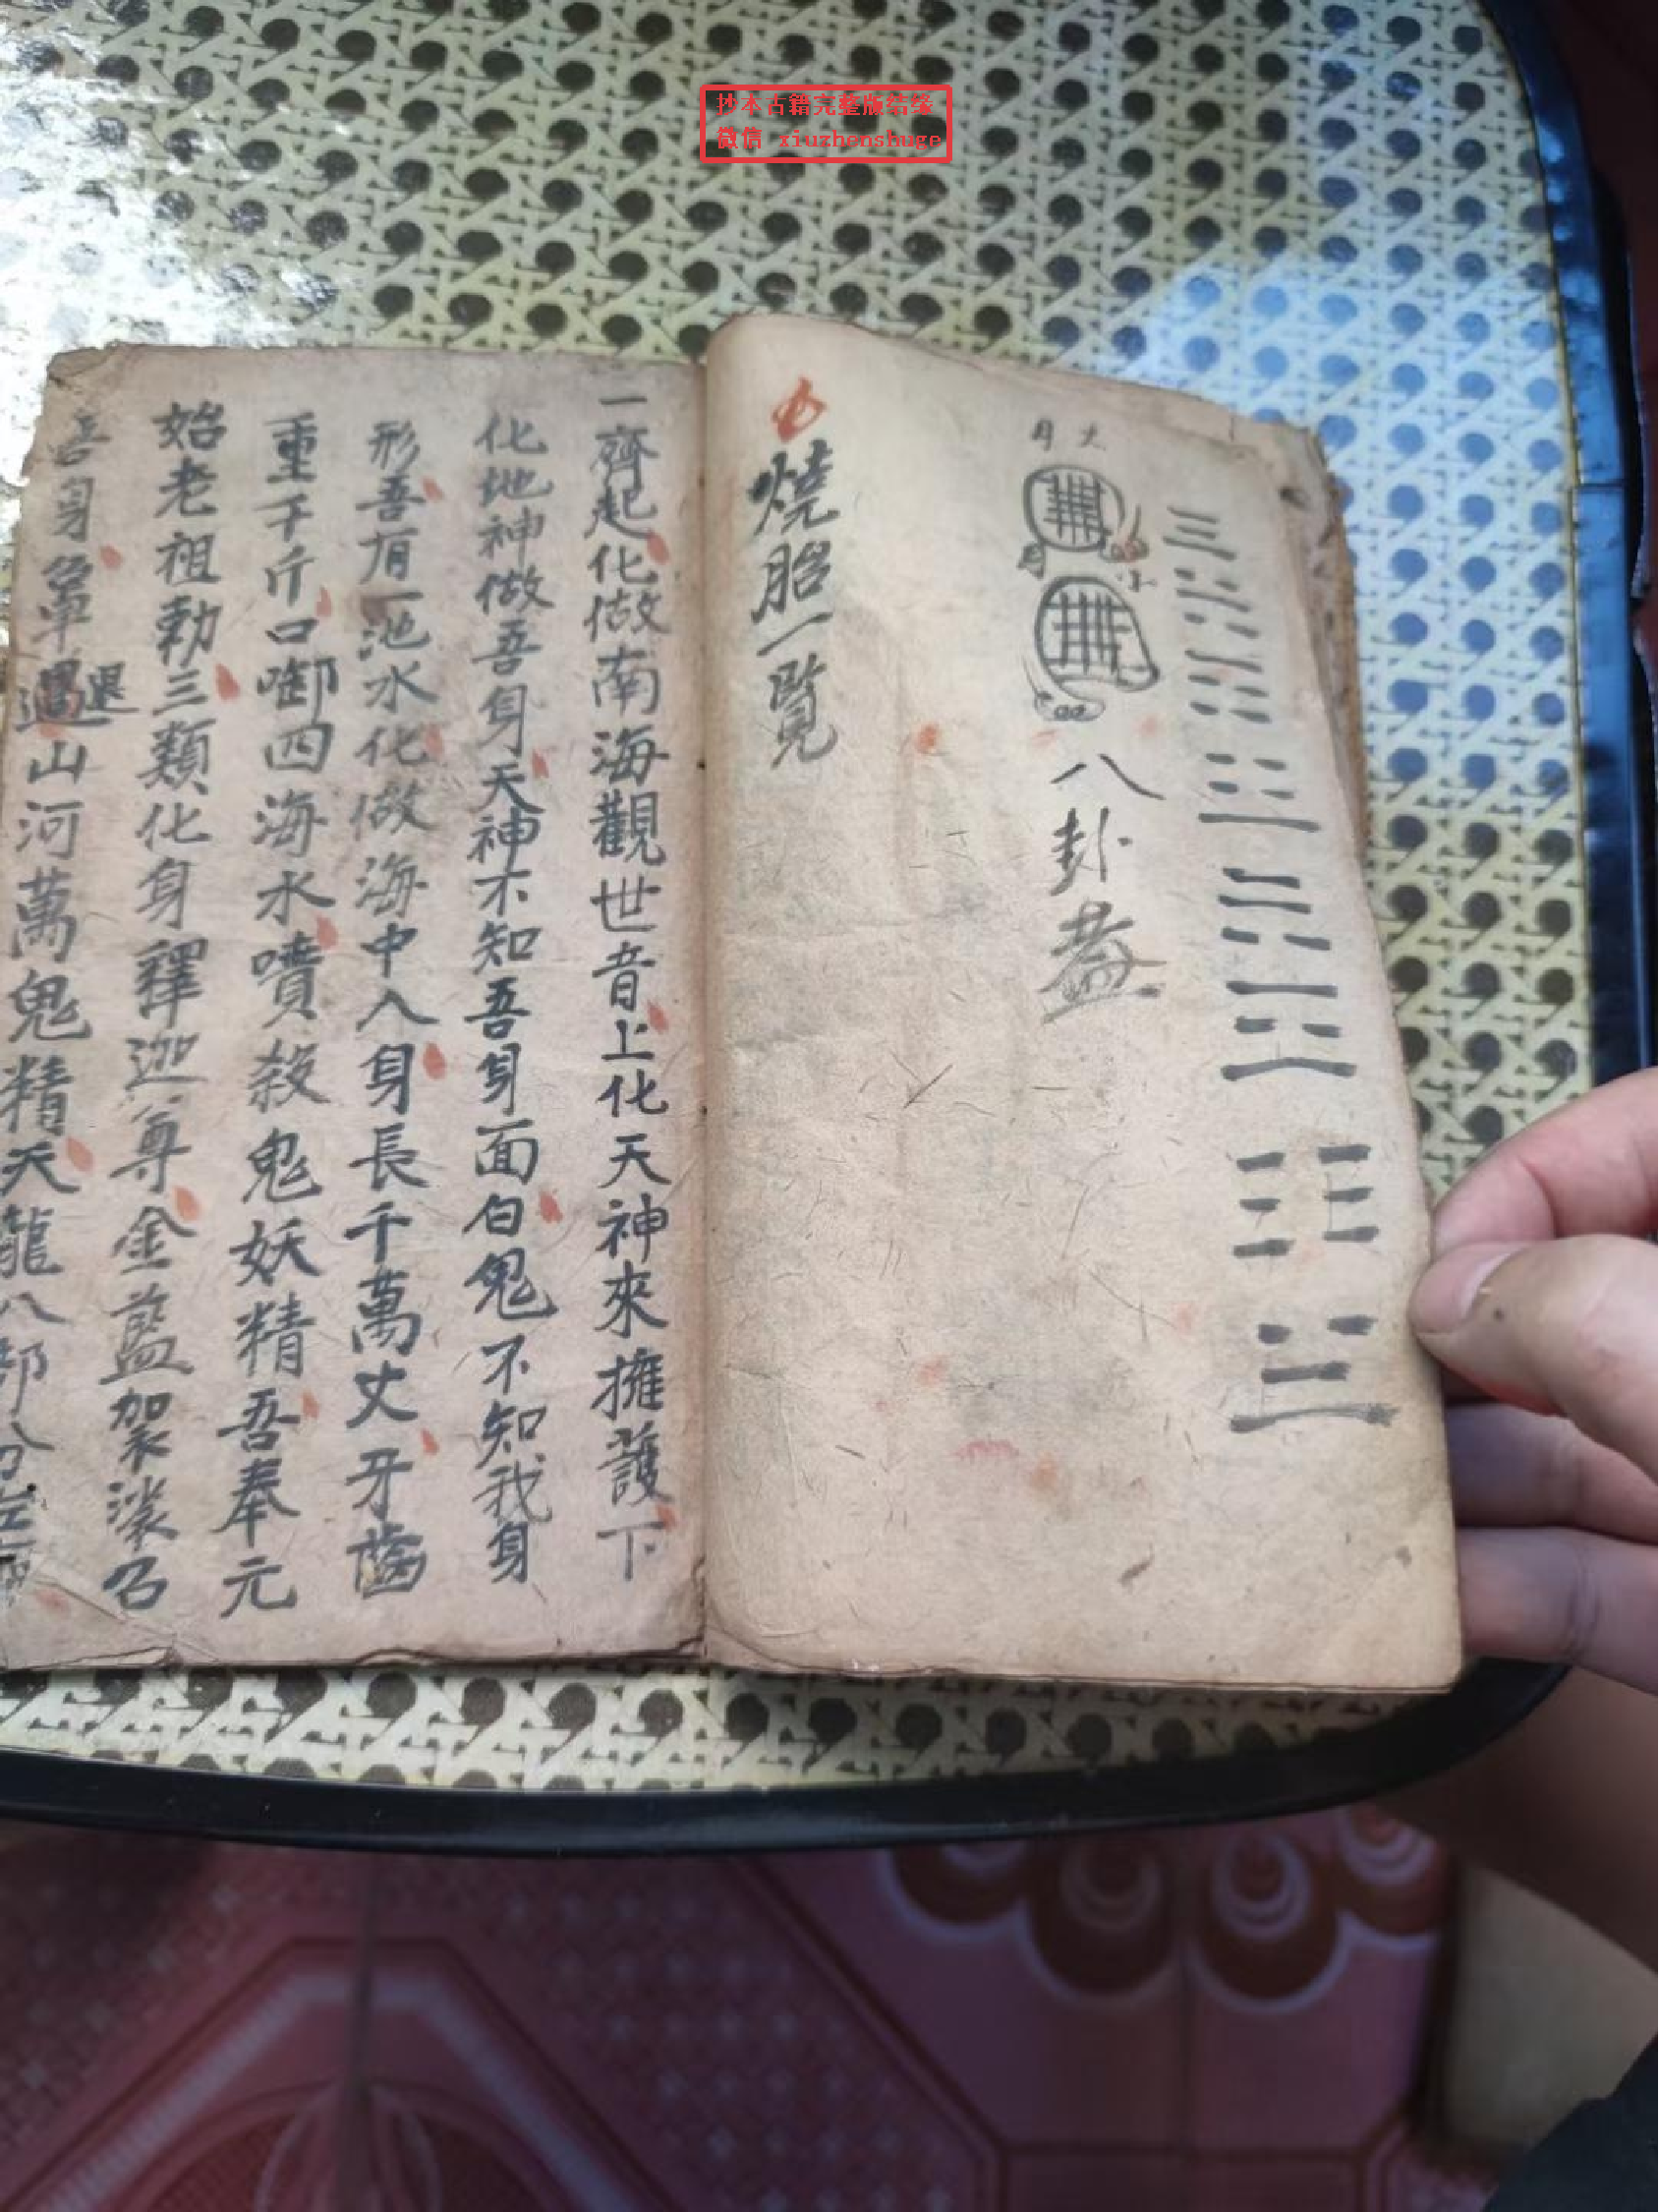 抄本古籍完整版结缘
微信 xiuzhenshuge
大月
小月
八卦蓋
燒胎一覽
一齊起化做南海觀世音上化天神來擁護下
化地神做吾身天神不知吾身面白鬼不知我身
形吾有一池水化做海中入身長千萬丈牙齒
重千斤口啣四海水噴殺鬼妖精吾奉元
始老祖勅三類化身釋迦尊金藍袈裟召
吾身罩退過山河萬鬼精天龍八部分左